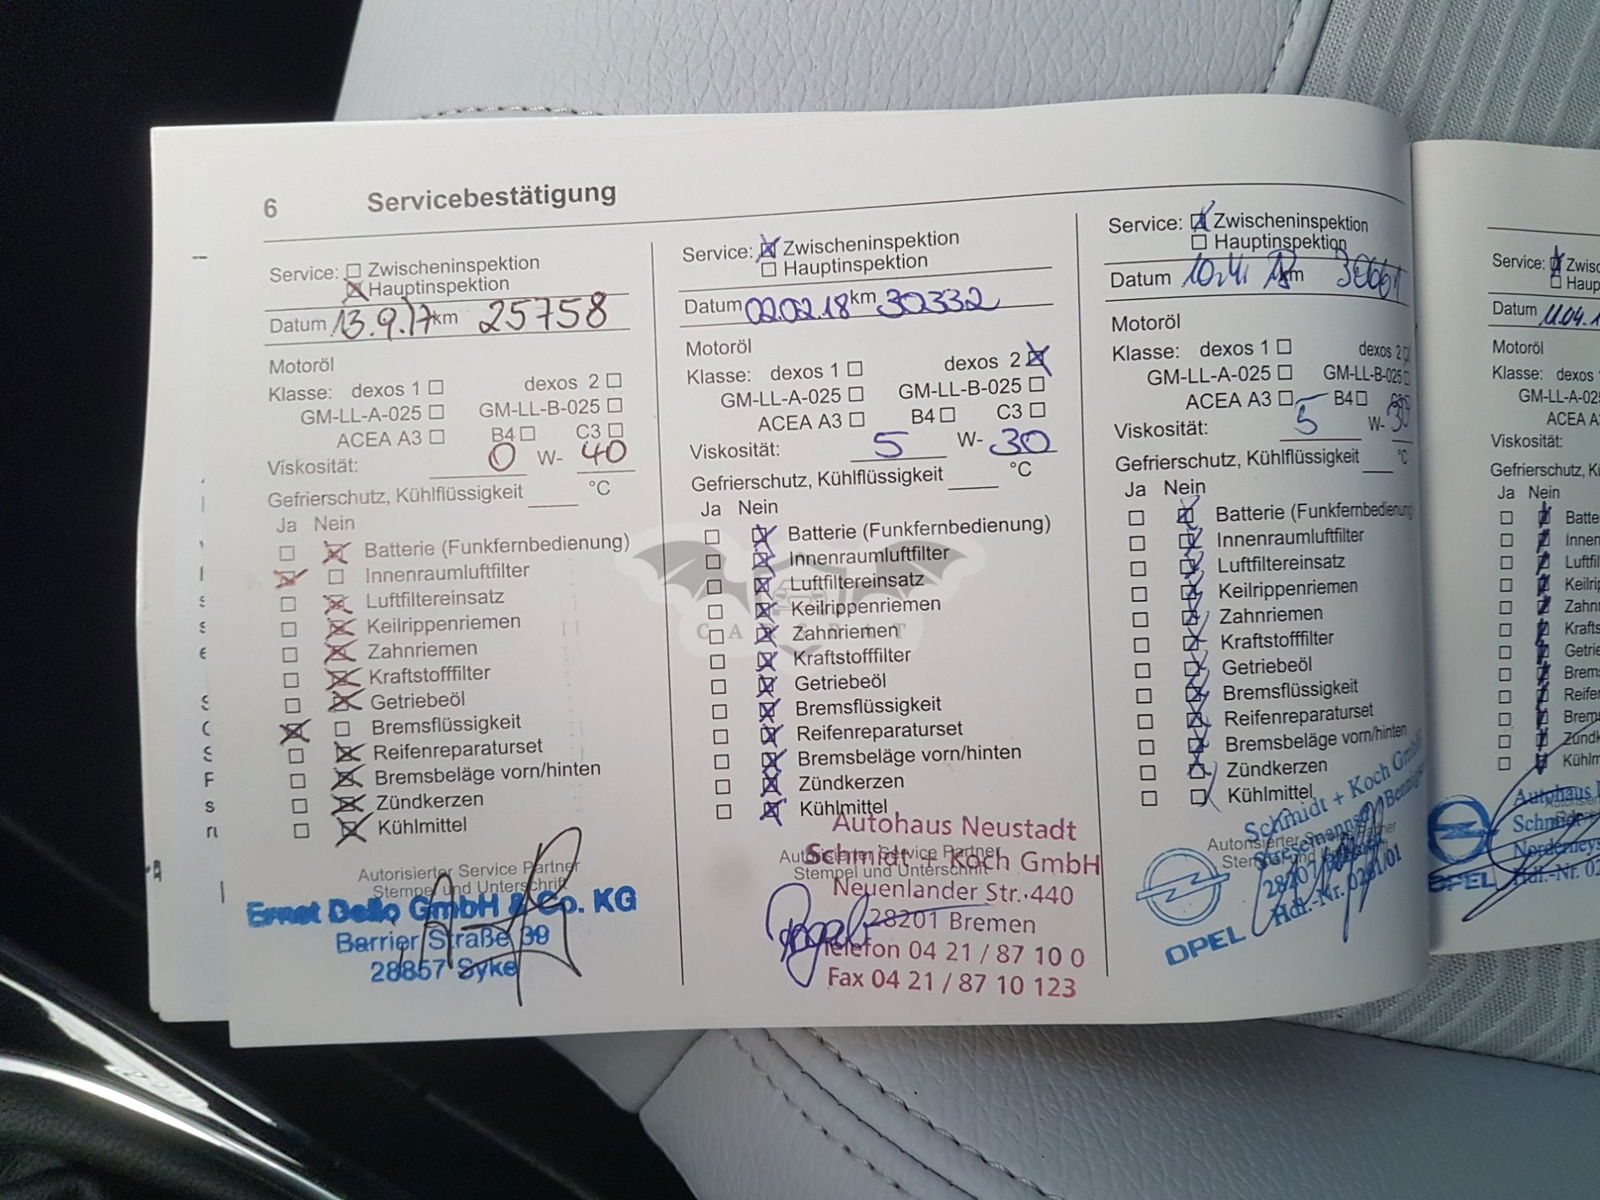 6 Servicebestätigung
Service: Zwischeninspektion
Hauptinspektion
Datum 13.9.17 km 25758
Motoröl
Klasse: dexos 1 dexos 2
GM-LL-A-025 GM-LL-B-025
ACEA A3 B4 C3
Viskosität: 0 W- 40
Gefrierschutz, Kühlflüssigkeit °C
Ja Nein
Batterie (Funkfernbedienung)
Innenraumluftfilter
Luftfiltereinsatz
Keilrippenriemen
Zahnriemen
Kraftstofffilter
Getriebeöl
Bremsflüssigkeit
Reifenreparaturset
Bremsbeläge vorn/hinten
Zündkerzen
Kühlmittel
Autorisierter Service Partner
Stempel und Unterschrift
Ernst Dello GmbH & Co. KG
Barrier Straße 39
28857 Syke
Service: Zwischeninspektion
Hauptinspektion
Datum 02.02.18 km 30332
Motoröl
Klasse: dexos 1 dexos 2
GM-LL-A-025 GM-LL-B-025
ACEA A3 B4 C3
Viskosität: 5 W- 30
Gefrierschutz, Kühlflüssigkeit °C
Ja Nein
Batterie (Funkfernbedienung)
Innenraumluftfilter
Luftfiltereinsatz
Keilrippenriemen
Zahnriemen
Kraftstofffilter
Getriebeöl
Bremsflüssigkeit
Reifenreparaturset
Bremsbeläge vorn/hinten
Zündkerzen
Kühlmittel
Autorisierter Service Partner
Stempel und Unterschrift
Autohaus Neustadt
Schmidt + Koch GmbH
Neuenlander Str. 440
28201 Bremen
Telefon 04 21 / 87 10 0
Fax 04 21 / 87 10 123
Service: Zwischeninspektion
Hauptinspektion
Datum 18 km
Motoröl
Klasse: dexos 1 dexos 2
GM-LL-A-025 GM-LL-B-025
ACEA A3 B4 C3
Viskosität: 5 W- 30
Gefrierschutz, Kühlflüssigkeit °C
Ja Nein
Batterie (Funkfernbedienung
Innenraumluftfilter
Luftfiltereinsatz
Keilrippenriemen
Zahnriemen
Kraftstofffilter
Getriebeöl
Bremsflüssigkeit
Reifenreparaturset
Bremsbeläge vorn/hinten
Zündkerzen
Kühlmittel
Autorisierter Service Partner
Schmidt + Koch GmbH
Hdl.-Nr. 0261/01
OPEL
Service: Zwisc
Haup
Datum 11.04.1
Motoröl
Klasse: dexos
GM-LL-A
ACEA A
Viskosität:
Gefrierschutz, K
Ja Nein
Batte
Innen
Luftfil
Keilrip
Zahn
Krafts
Getrie
Brem
Reifen
Brems
Zündk
Kühlm
Autohaus
Schmidt
OPEL
Hdl.-Nr. 02